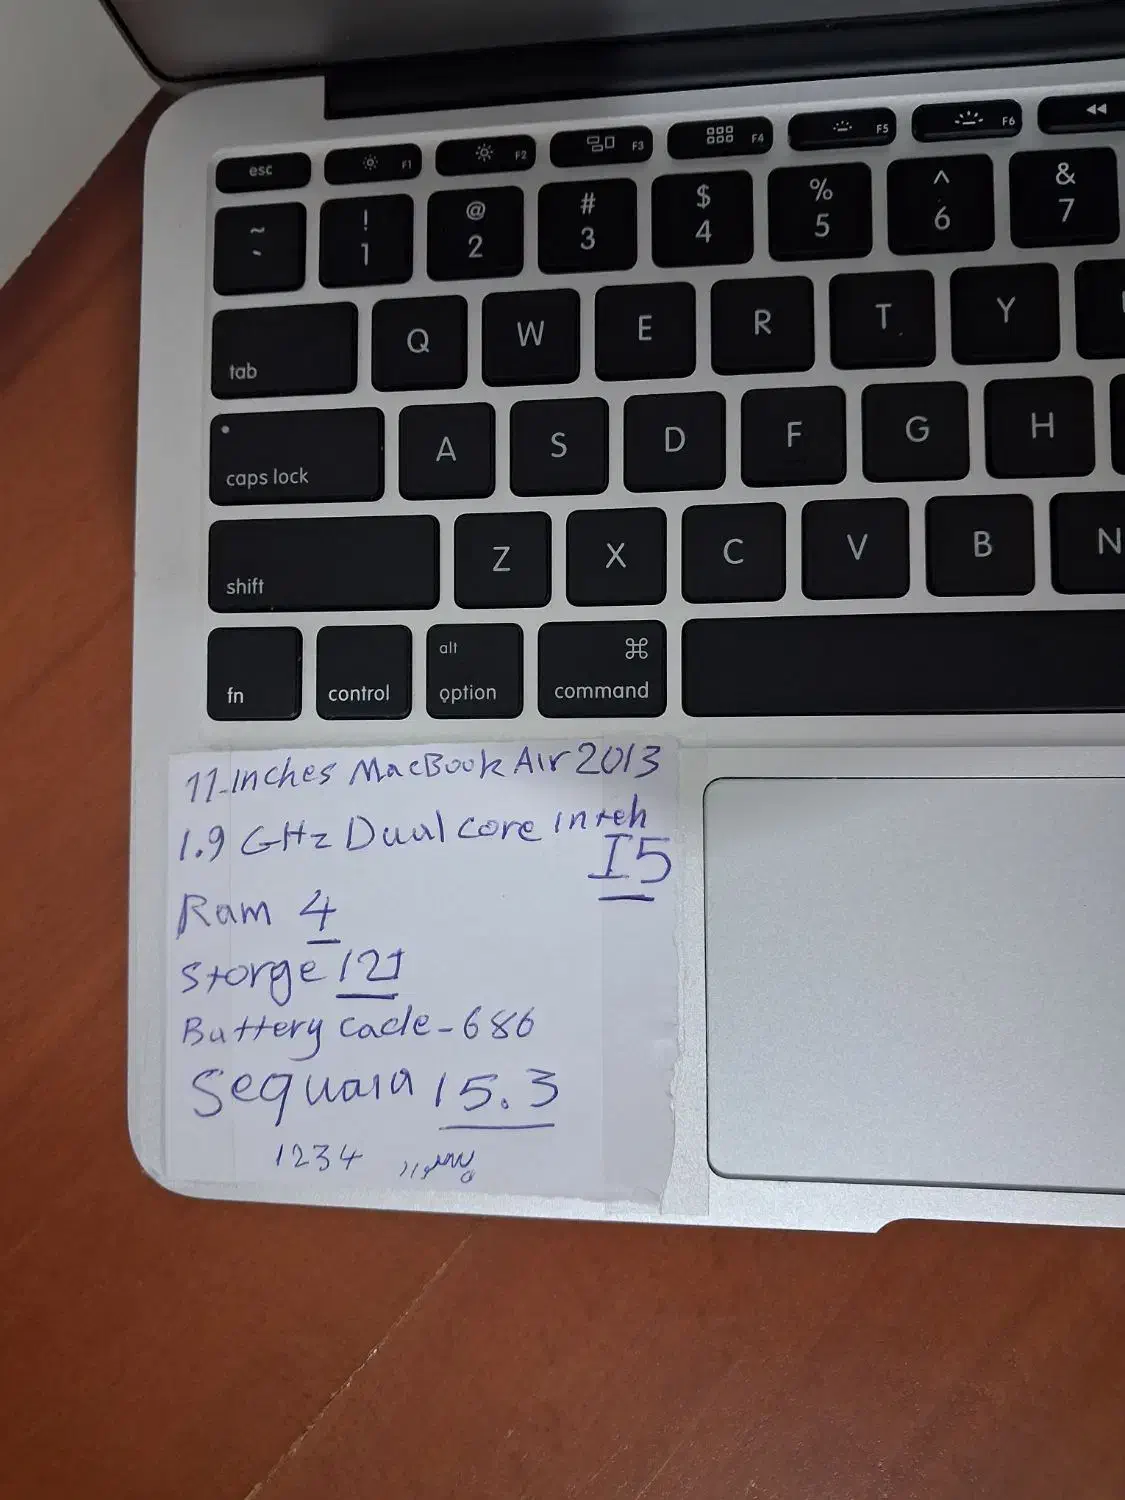 esc F1 F2 F3 F4 F5 F6
~ ` ! 1 @ 2 # 3 $ 4 % 5 ^ 6 & 7
tab Q W E R T Y
caps lock A S D F G H
shift Z X C V B N
fn control alt option ⌘ command
11-Inches MacBook Air 2013
1.9 GHz Dual core inteh
I5
Ram 4
Storge 121
Battery cacle-686
Sequaia 15.3
1234